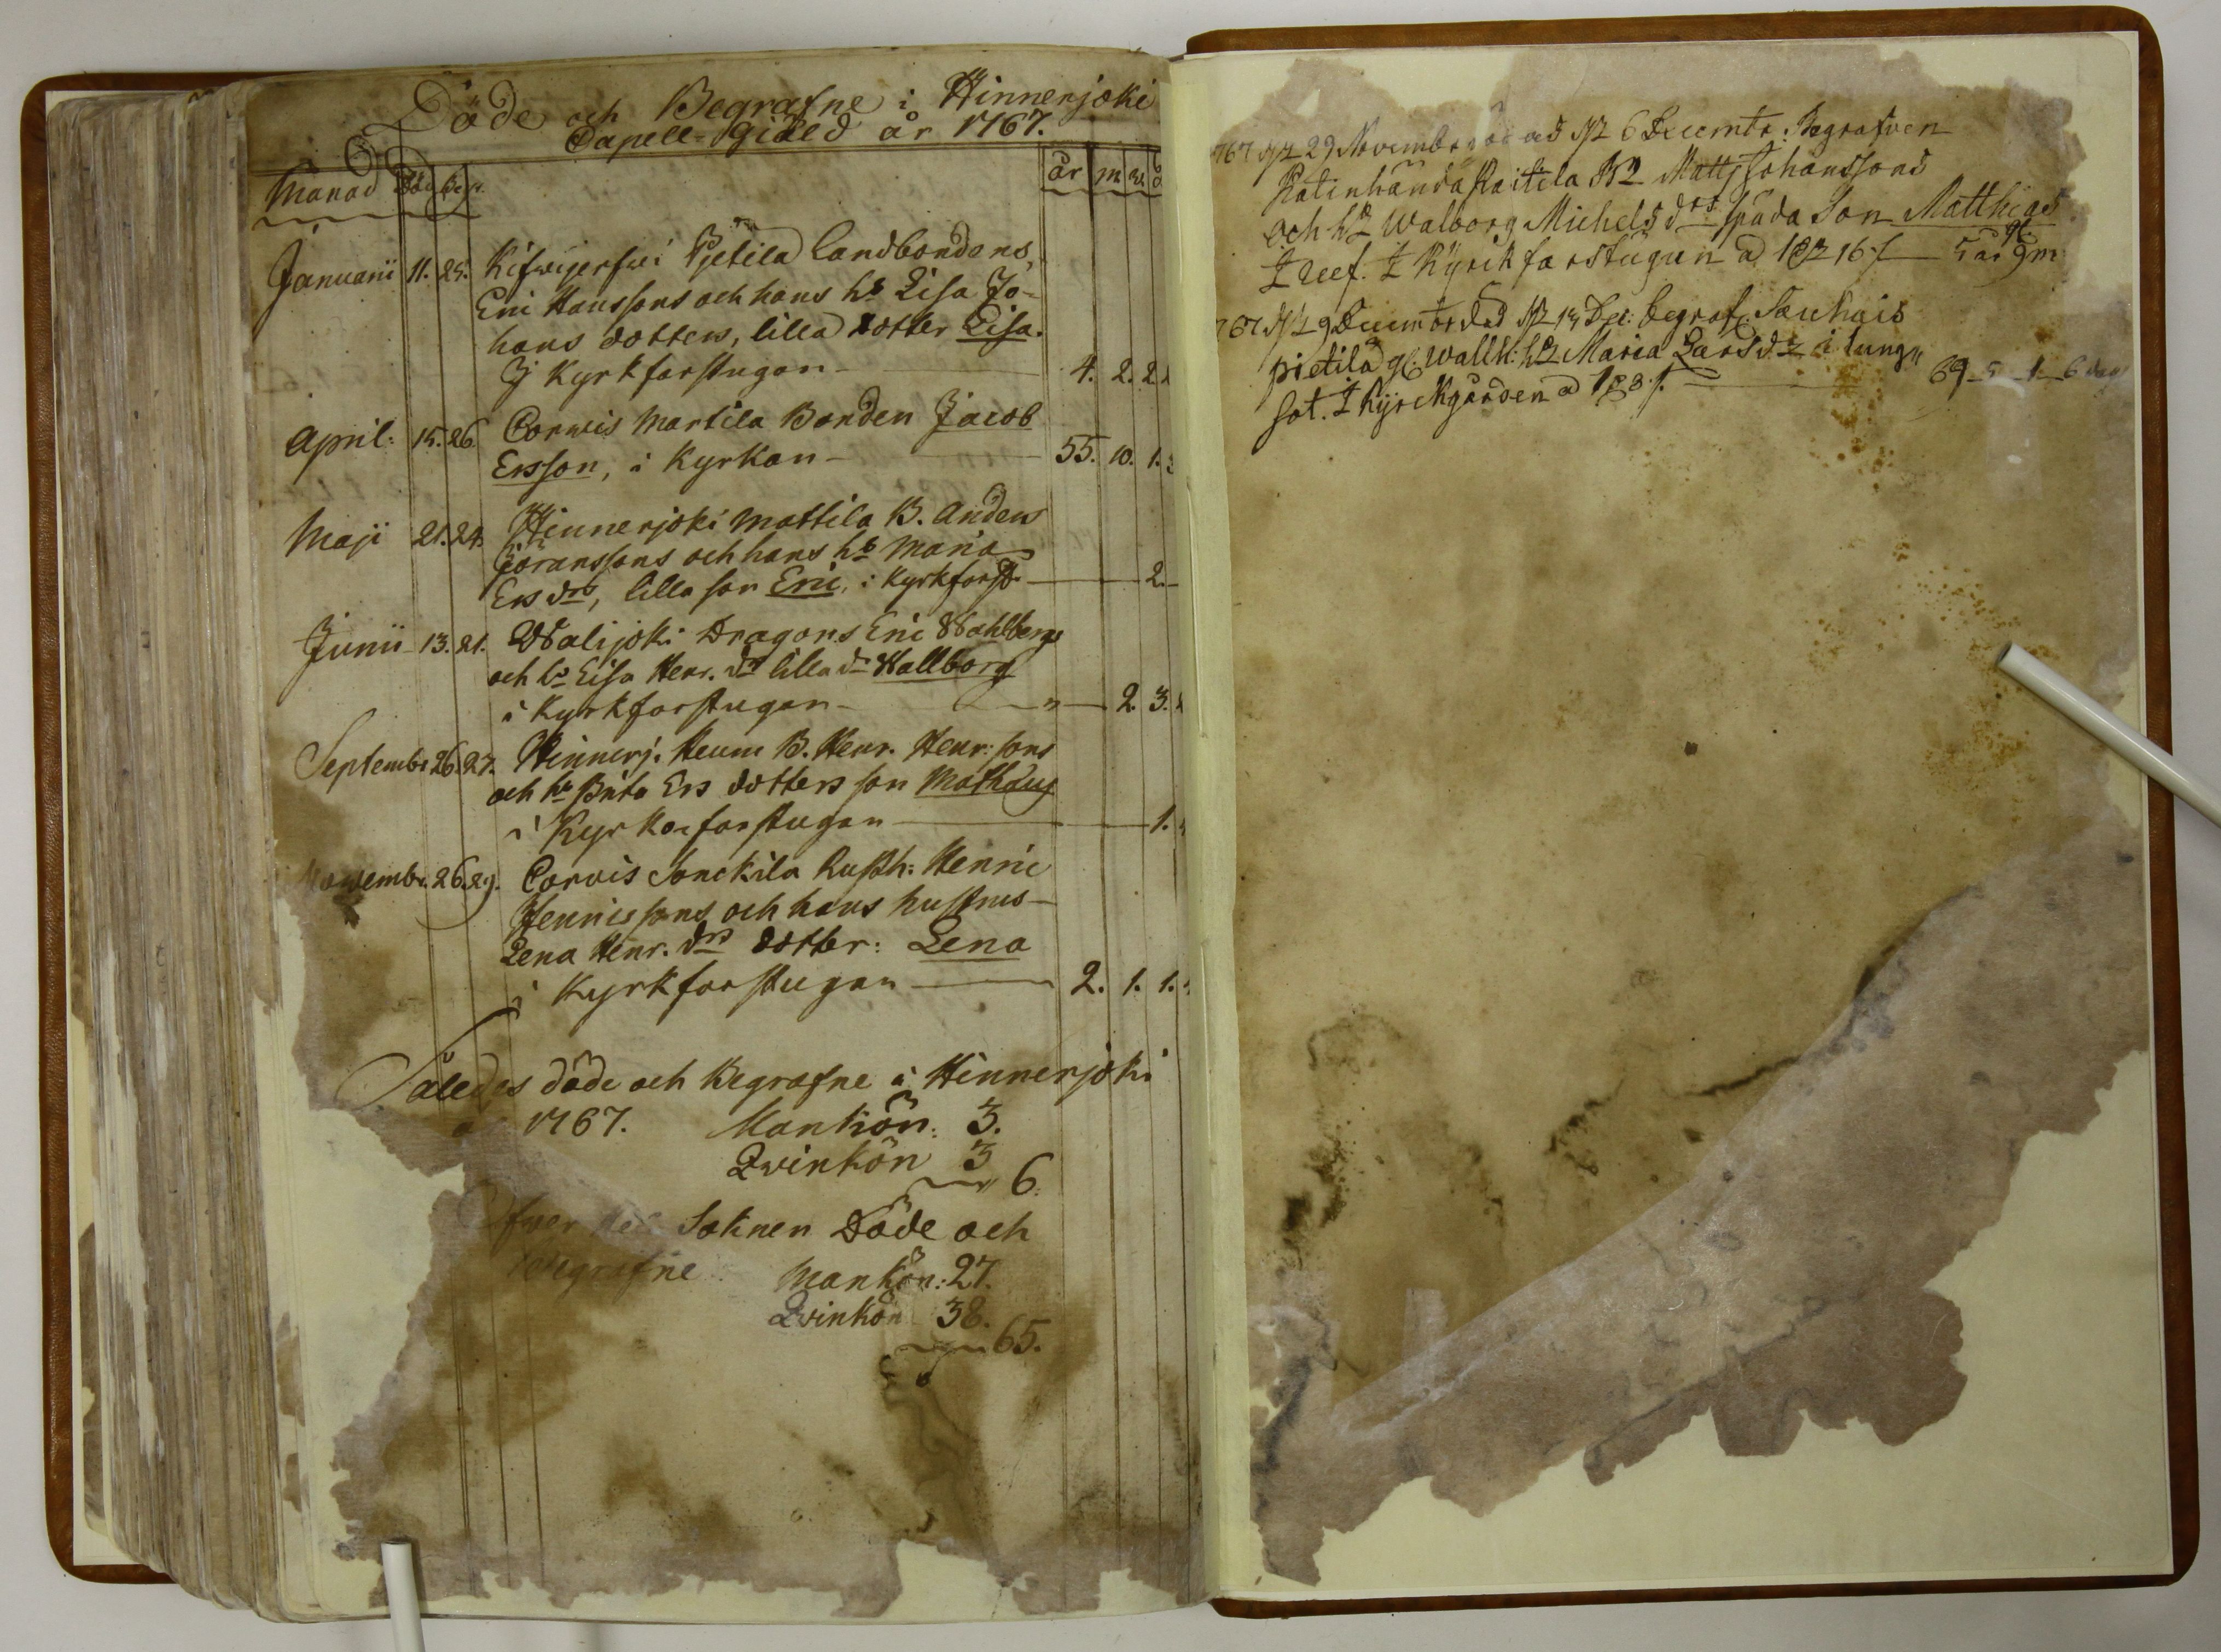 Döde och Begrafne i Hinnerjoki
Capell-giäld år 1767.
Månad Död Begr. år m. w. d
Januarii 11. 25. Kifwijerfwi Pjetila Landbondens,
Eric Hanssons och hans h: Lisa Jo-
hans dotters, lilla dotter Lisa.
J Kyrkforstugan - 4. 2. 2.
April: 15. 26. Corwis Martila Bonden Jacob
Ersson, i Kyrkan - 55. 10. 1.
Maji 21. 24. Hinnerjoki Mattila B. Anders
Göranssons och hans h: Maria
Ers drs, lilla son Eric, i Kyrkforst. 2. -
Junii 13. 21. Walijoki Dragons Eric Wahlbergs
och h: Lisa Henr. dr lilla dr Wallborg
i Kyrkforstugan - 2. 3.
Septembr 26. 27. Hinnerj. Heum B. Henr. Henr: sons
och h: Brita Ers dotters son Mathäus
i Kyrkoforstugan - 1.
Novembr. 26. 29. Corvis Sonckila Rusth: Henric
Henricssons och hans hustrus
Lena Henr. drs dotter: Lena
i Kyrkforstugan - 2. 1. 1.
Således döde och Begrafne i Hinnerjoki
a 1767. Mankön: 3.
Qvinkön 3
6.
Öfwer hela Soknen Döde och
Begrafne Mankön: 27.
Qvinkön 38.
65.
767 29 November död 6 Decembr: Begrafven
Raitila Matts Johanssons
och h: Walborg Michels drs späda Son Matthias
I Kyrckforstugun 5 år 9 m
767 9 Decembr död 13 Dec: begraf.
pietila gl. Maria Lars dr i lung
sot. I kyrckgården 69 5 1 6 dag